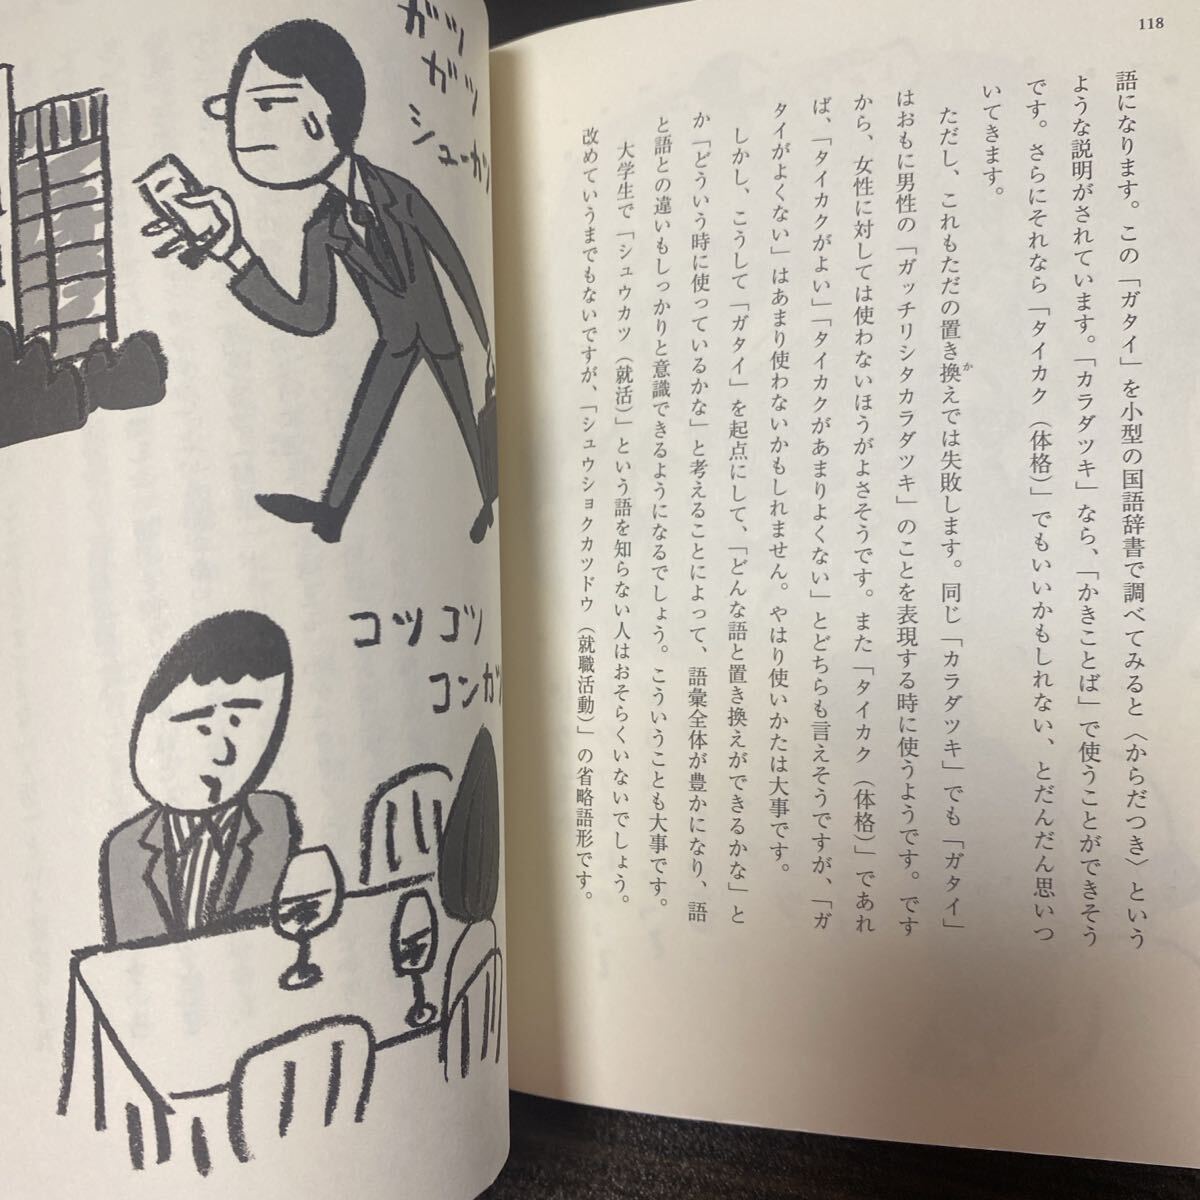 118
語になります。この「ガタイ」を小型の国語辞書で調べてみると〈からだつき〉という
ような説明がされています。「カラダツキ」なら、「かきことば」で使うことができそう
です。さらにそれなら「タイカク（体格）」でもいいかもしれない、とだんだん思いつ
いてきます。
ただし、これもただの置き換えでは失敗します。同じ「カラダツキ」でも「ガタイ」
か
はおもに男性の「ガッチリシタカラダツキ」のことを表現する時に使うようです。です
から、女性に対しては使わないほうがよさそうです。また「タイカク（体格）」であれ
ば、「タイカクがよい」「タイカクがあまりよくない」とどちらも言えそうですが、「ガ
タイがよくない」はあまり使わないかもしれません。やはり使いかたは大事です。
しかし、こうして「ガタイ」を起点にして、「どんな語と置き換えができるかな」と
か「どういう時に使っているかな」と考えることによって、語彙全体が豊かになり、語
と語との違いもしっかりと意識できるようになるでしょう。こういうことも大事です。
大学生で「シュウカツ（就活）」という語を知らない人はおそらくいないでしょう。
改めていうまでもないですが、「シュウショクカツドウ（就職活動）」の省略語形です。
ガツ
ガツ
シューカツ
コツコツ
コンカツ